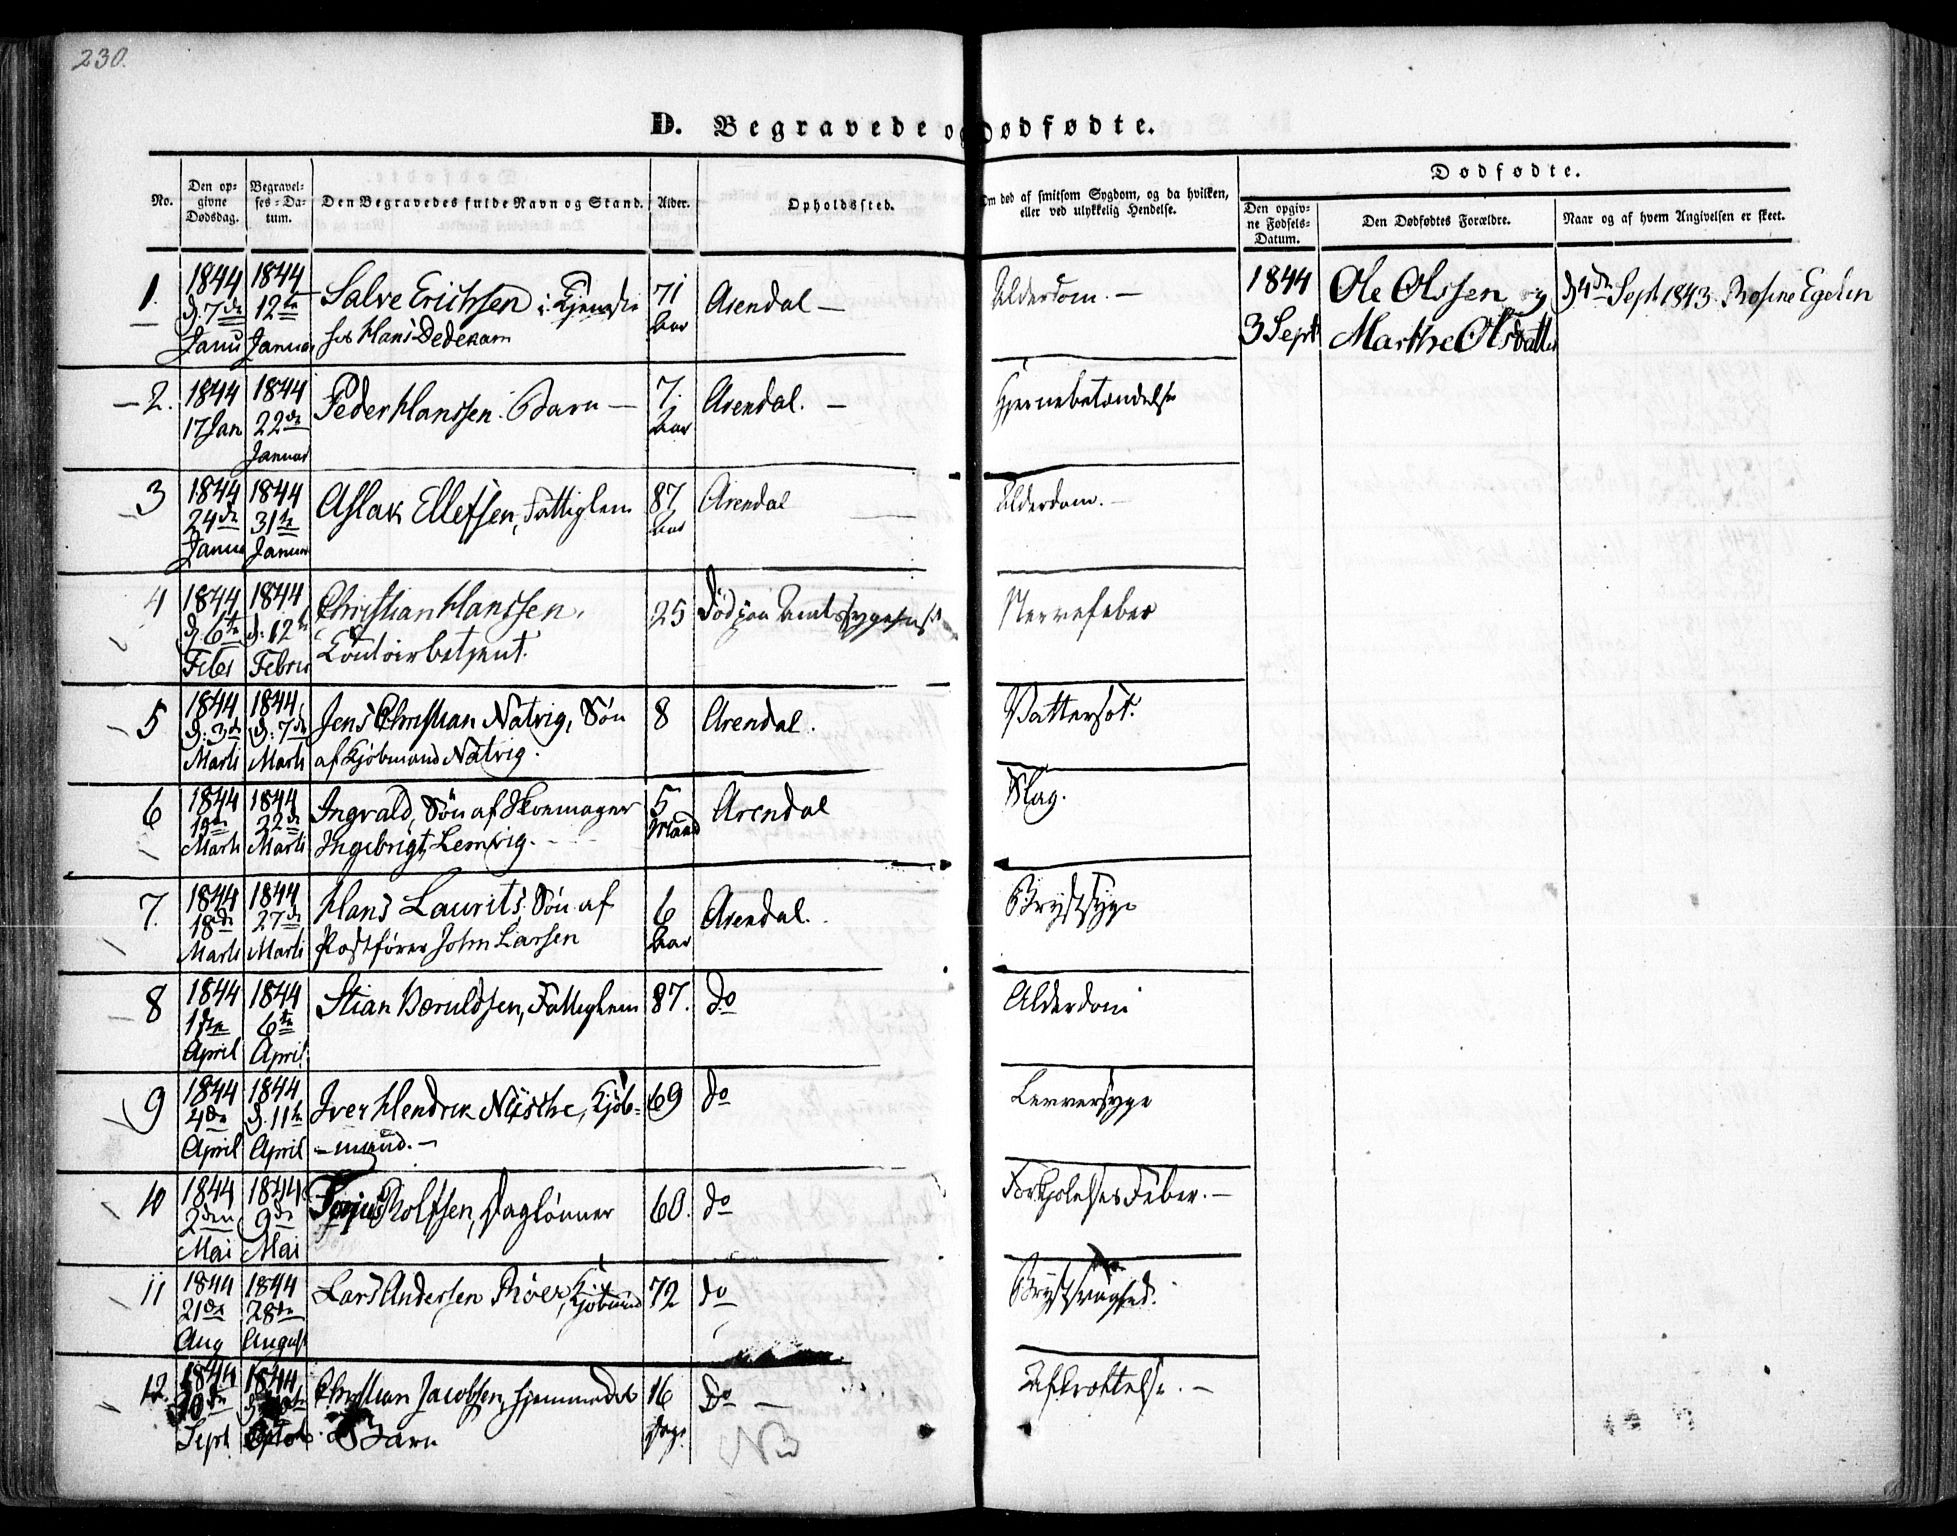 230.
D. Begravede og Dødfødte.
No.
Den op-
givne
Dødsdag.
Begravel-
ses-Da-
tum.
Den Begravedes fulde Navn og Stand.
Alder.
Opholdssted.
Om død af smitsom Sygdom, og da hvilken,
eller ved ulykkelig Hendelse.
Dødfødte.
Den opgiv-
ne Fødsels-
Datum.
Den Dødfødtes Forældre.
Naar og af hvem Angivelsen er skeet.
1. 1844 d. 7de Janu 1844 12te Januar Salve Erichsen i Tjeneste 71 Aar Arendal — Alderdom. —
hos Hans Dedekam
1844 3 Sept Ole Olssen og d 4de Sept 1843. Rosine Egelin
Marthe Olsdatter
2. 1844 17 Jan 1844 22de Januar Peder Hanssen. Barn — 7. Aar Arendal. — Hjernebetændelse
3 1844 24de Janua 1844 31te Januar Aslak Ellefsen, Fattiglem 87 Aar Arendal Alderdom. —
4 1844 d. 6te Feber 1844 d. 12te Febru Christian Hanssen, 25 Død paa Amtssygehus Nervefeber
Contoirbetjent.
5 1844 d. 3de Marti 1844 d. 7de Marti Jens Christian Natvig, Søn 8 Arendal. Vattersot.
af Kjøbmand Natvig.
6 1844 Marti 1844 22de Marti Ingvald, Søn af Skomager 5 Maand Arendal Slag.
Ingebrigt Lemvig. —
7. 1844 18de Marti 1844 27de Marti Hans Laurits Søn af 6 Aar Arendal. Brystsyge
Postfører John Larsen
8 1844 1ste April 1844 6te April Stian Bæruldsen, Fattiglem 87. do Alderdom
9 1844 4de April 1844 d. 11te April Iver Hendrik Nüsche, Kjøb- 69 do Leversyge
-mand. —
10 1844 2den Mai 1844 9de Mai Terjus Rolfsen, Daglønner 60. do Forkjølelses Feber. —
11 1844 21de Aug 1844 28de August Lars Andersen Røer, Kjøbmand 72 do Brystsvaghed.
12. 1844 Sept 1844 Octob Christian Jacobsen, hjemmedøbt 16 Dage. do — Afkræftelse. —
Barn
NB